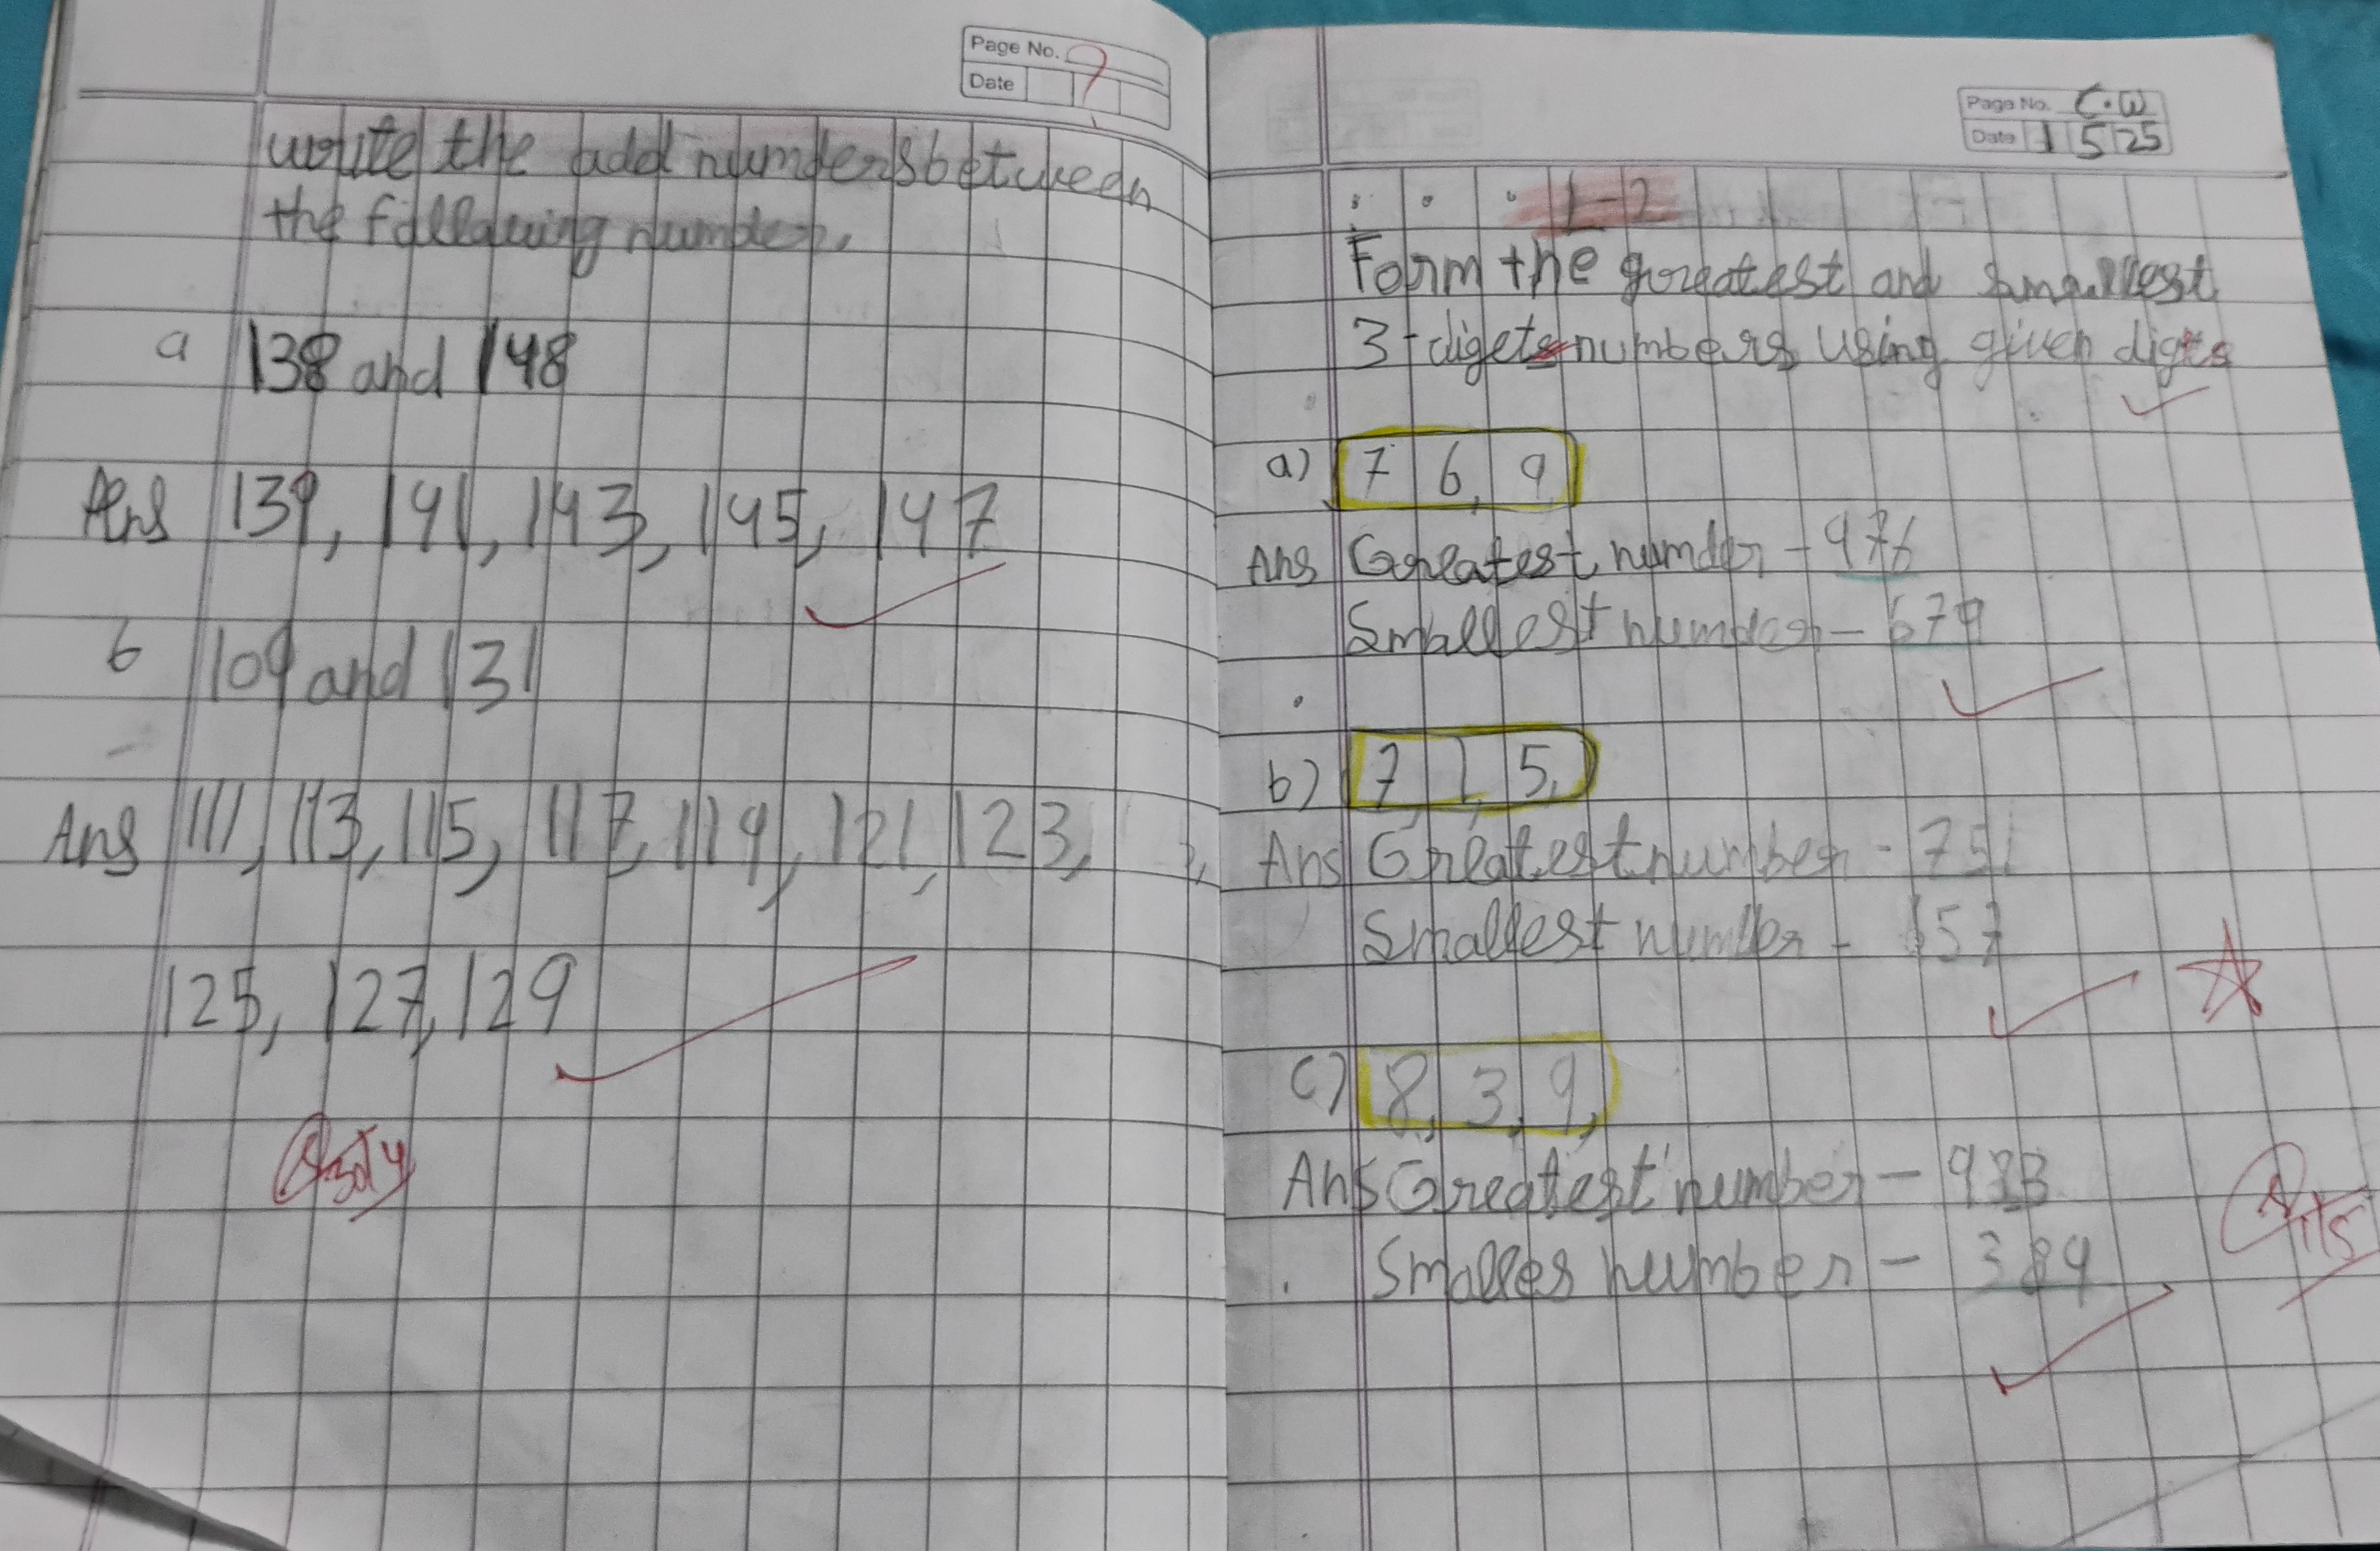 Page No.
Date
write the add numders between
the following number,
a 138 and 148
Ans 139, 141, 143, 145, 147
b 109 and 131
Ans 111, 113, 115, 117, 119, 121, 123,
125, 127, 129
30/4
Page No. C.W
Date 1 5 25
1-2
Form the greatest and smallest
3-digets numbers using given digts
a) 7 6, 9
Ans Greatest numder - 976
Smallest number - 679
b) 7, 1, 5,
Ans Greatest number - 751
Smallest number - 157
c) 8, 3, 9,
Ans Greatest number - 983
Smalles number - 389
1/5